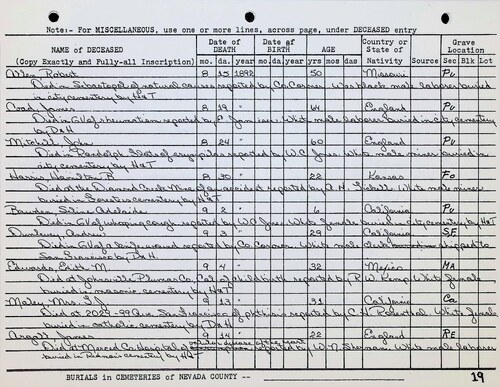 Note:- For MISCELLANEOUS, use one or more lines, across page, under DECEASED entry
NAME of DECEASED (Copy Exactly and Fully-all Inscription) Date of DEATH mo. da. year Date of BIRTH mo. da. year AGE yrs mos das Country or State of Nativity Grave Location Sec Blk Lot
Allen, Robert 8 15 1892 50 Missouri Pv
Died in Sebastopol of natural causes reported by Co. Coroner. Was black male laborer buried
in city cemetery by H&T
Coad, James 8 19 " 64 England Pv
Died in GV of rheumatism reported by E. Jam White male laborer buried in city cemetery
by D&H
Mitchell, John 8 24 " 60 England Pv
Died in Randolph reported by W.C. Jones. White male miner buried in
city cemetery by H&T
Harris, Hamilton B 8 30 " 22 Kansas Fo
Died at the Diamond Creek Mine of an accident reported by A. H. White male miner
buried in Foresters cemetery by H&T
Adelaide 9 2 " 6 California Pv
Died in GV of whooping cough reported by W.C. Jones. White female buried in city cemetery by H&T
9 3 " 29 California S.F.
Died in GV of a knife wound reported by Co. Coroner. White male clerk shipped to
San Francisco by D&H
Edwards, Edith M. 9 4 " 32 Mexico MA
Died at Johnsville, Plumas Co, Cal of childbirth reported by R. W. Kemp. White female
buried in masonic cemetery by H&T
Maley, Mrs. T.J. 9 13 " 31 California Ca
Died at 2029-99 Ave. San Francisco of phthisis reported by C. H. Rosenthal. White female
buried in catholic cemetery by D&H
Argall, James 9 14 " 22 England RE
Died at Merced Co. Hospital of reported by W. N. Sherman. White male laborer
buried in cemetery by H&T
BURIALS in CEMETERIES of NEVADA COUNTY -- 19